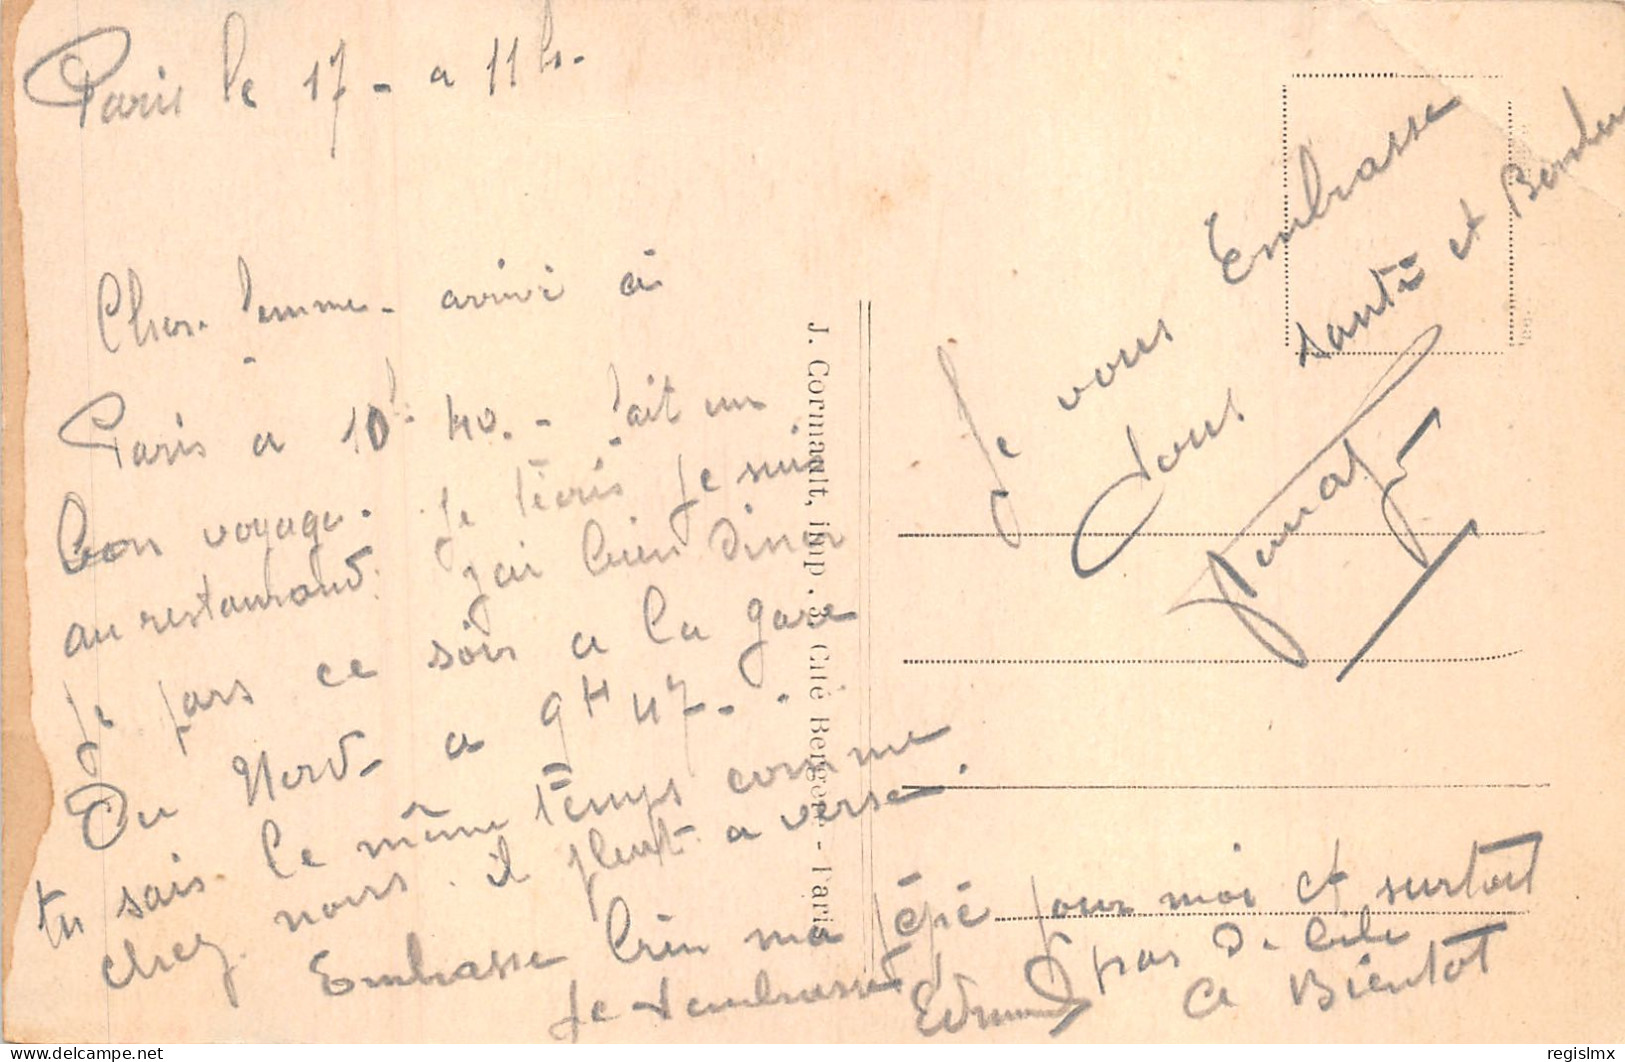 Paris le 17 - a 11 h.
Cher femme - arrivé à
Paris a 10h 40. - fait un
bon voyage. Je t'écris Je suis
au restaurant. j'ai bien diner
Je pars ce soir a la gare
Du Nord - a 9H47. -
tu sais le même temps comme
chez nous. il pleut a verse.
Embrasse bien ma pépé pour moi et surtout
pas De
Je t'embrasse Edmond a Bientot
Je vous Embrasse
tous santé et
J. Cormault, imp. 3, Cité Bergère - Paris
regislmx
delcampe.net